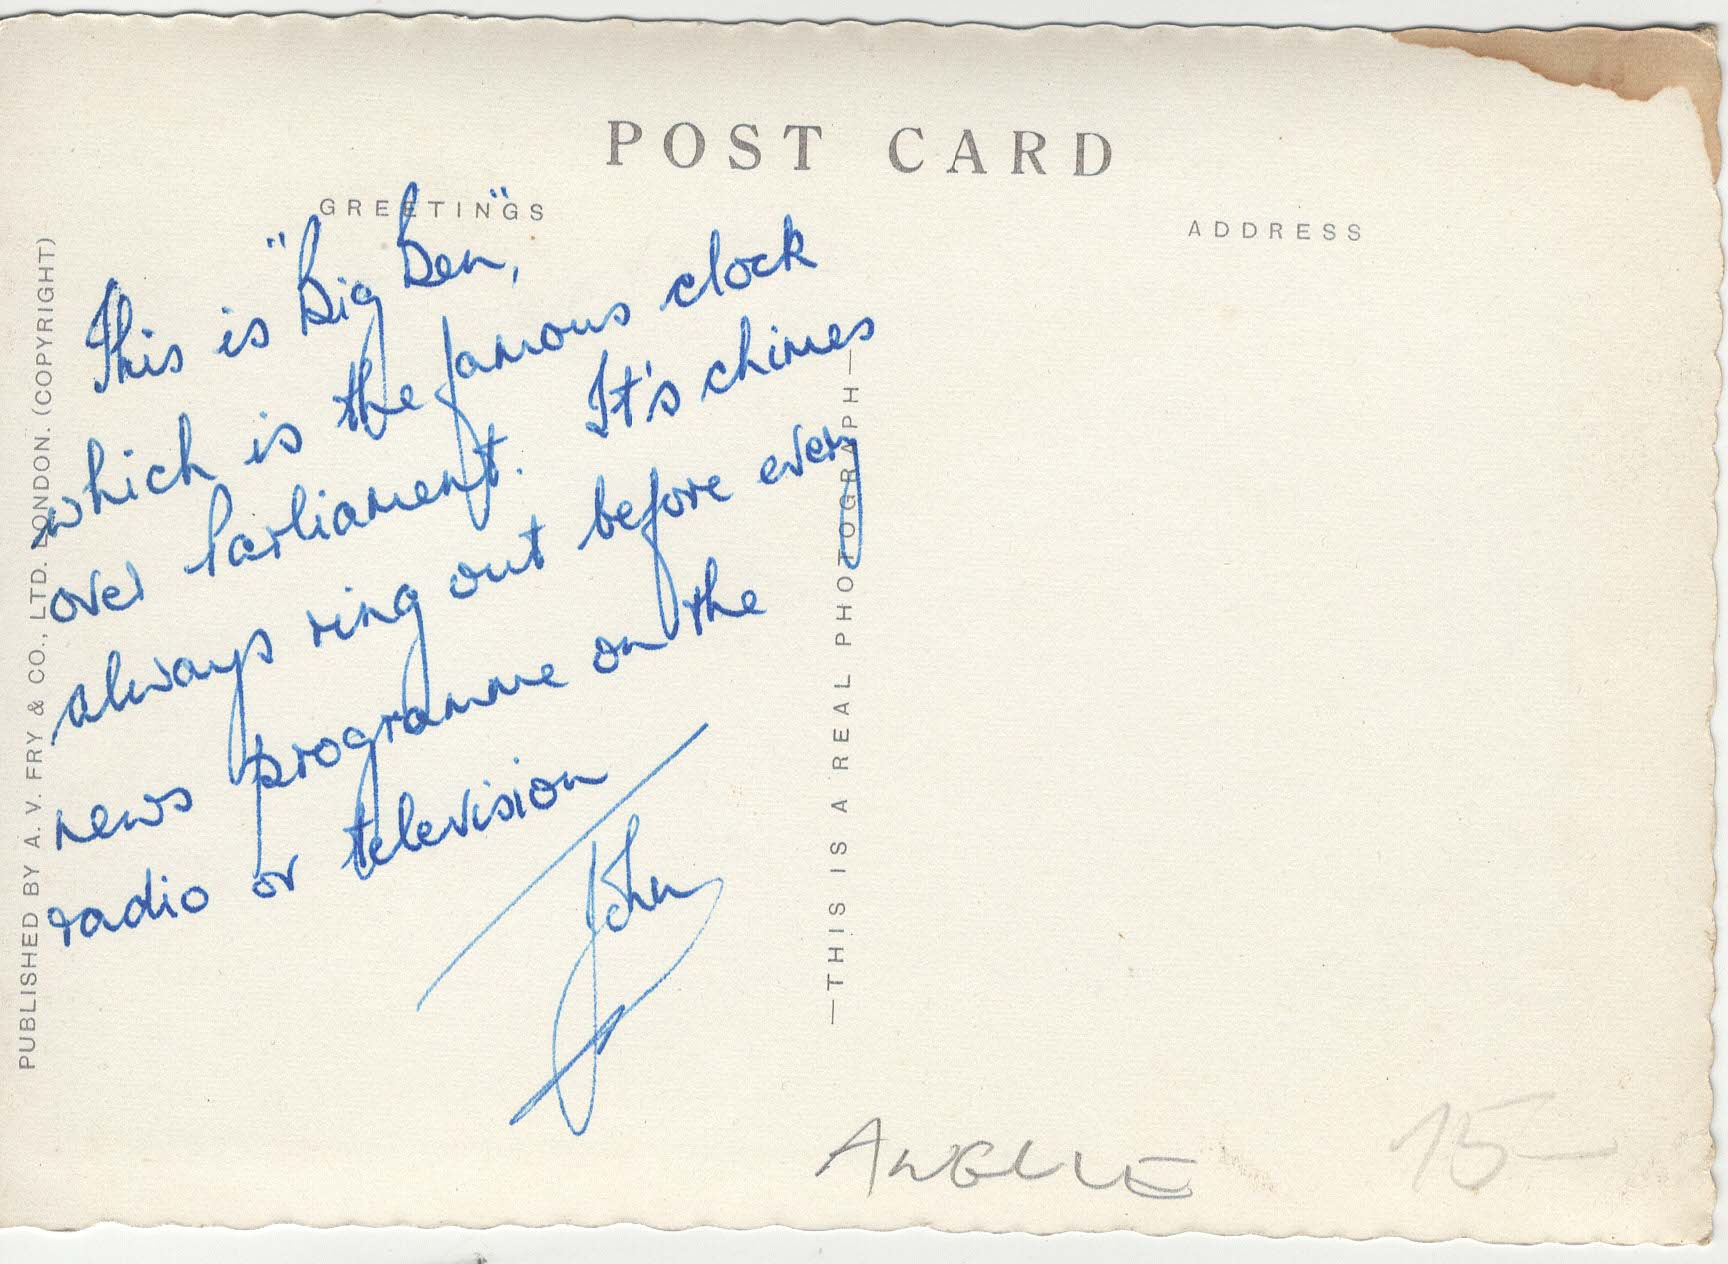 POST CARD
GREETINGS
ADDRESS
This is "Big Ben",
which is the famous clock
over Parliament. It's chimes
always ring out before every
news programme on the
radio or television
John
PUBLISHED BY A. V. FRY & CO., LTD. LONDON. (COPYRIGHT)
—THIS IS A REAL PHOTOGRAPH—
15-